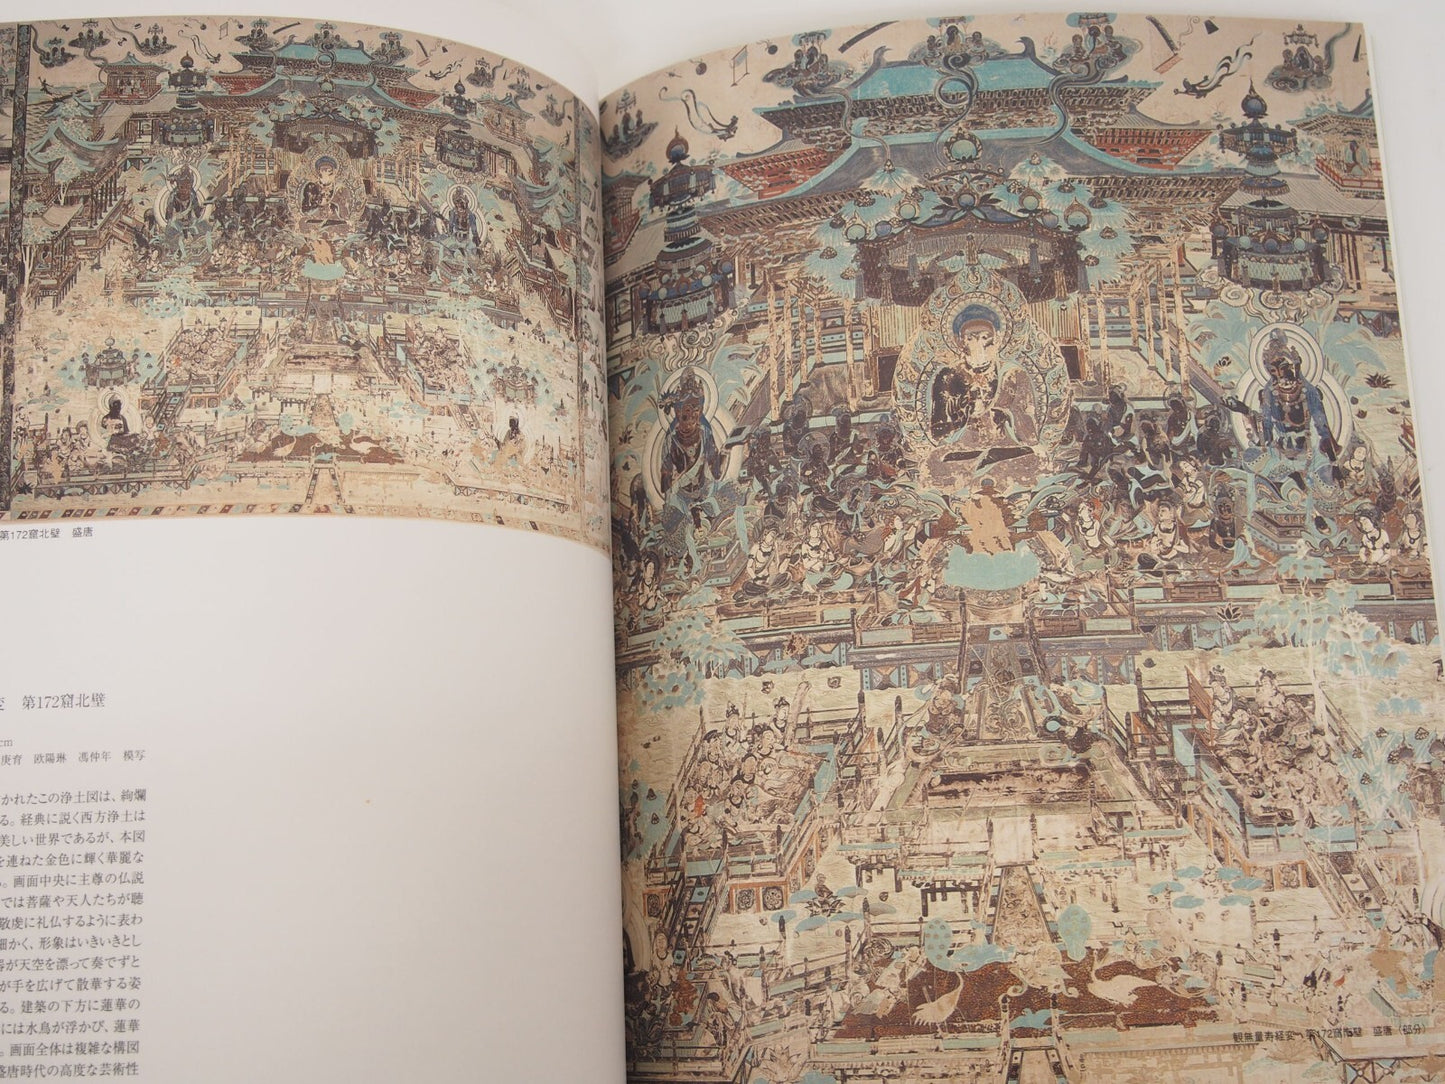 第172窟北壁　盛唐
変　第172窟北壁
cm
庚育　欧陽琳　馮仲年　模写
かれたこの浄土図は、絢爛
る。経典に説く西方浄土は
美しい世界であるが、本図
を連ねた金色に輝く華麗な
。画面中央に主尊の仏説
では菩薩や天人たちが聴
敬虔に礼仏するように表わ
細かく、形象はいきいきとし
器が天空を漂って奏でずと
が手を広げて散華する姿
る。建築の下方に蓮華の
には水鳥が浮かび、蓮華
。画面全体は複雑な構図
盛唐時代の高度な芸術性
観無量寿経変　第172窟北壁　盛唐（部分）